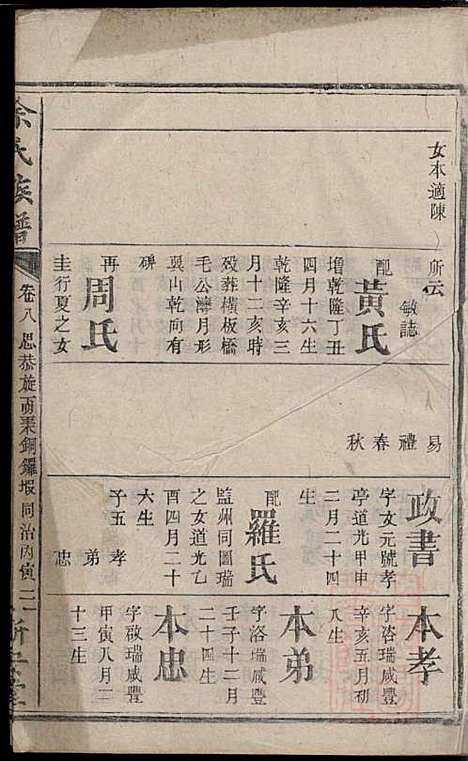 女本適陳
所云
敏誌
配
黃氏
增乾隆丁丑
四月十六生
乾隆辛亥三
月十二亥時
歿葬橫板橋
毛公灣月形
巽山乾向有
碑
再
周氏
圭行夏之女
易
禮
春
秋
政書
字文元號孝
亭道光甲申
二月二十四
生
配
羅氏
監州同圖瑞
之女道光乙
酉四月二十
六生
子五
孝
弟
忠
本孝
字洛瑞咸豐
辛亥五月初
八生
本弟
字浴瑞咸豐
壬子十二月
二十四生
本忠
字啟瑞咸豐
甲寅八月二
十三生
余氏族譜
卷八
思恭旋甫秉銅鑼塅同治丙寅